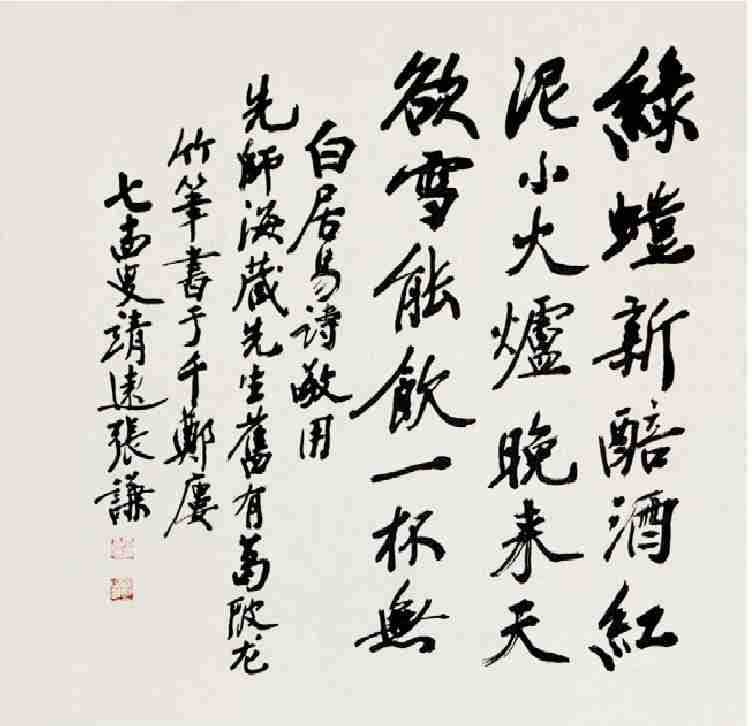 綠螘新醅酒紅
泥小火爐晚来天
欲雪能飲一杯無
白居易诗敬用
先師海藏先生舊有葛陂龙
竹筆書于千鄭廔
七叟靖遠張謙